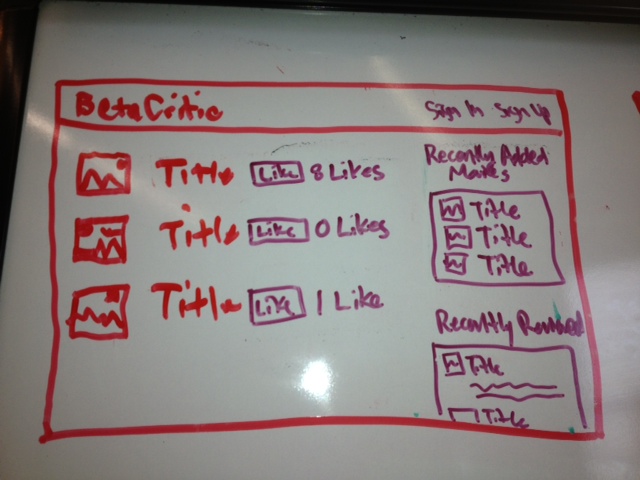 BetaCritic
Sign In Sign Up
Title Like 8 Likes
Title Like 0 Likes
Title Like 1 Like
Recently Added
Title
Title
Title
Recently
Title
Title